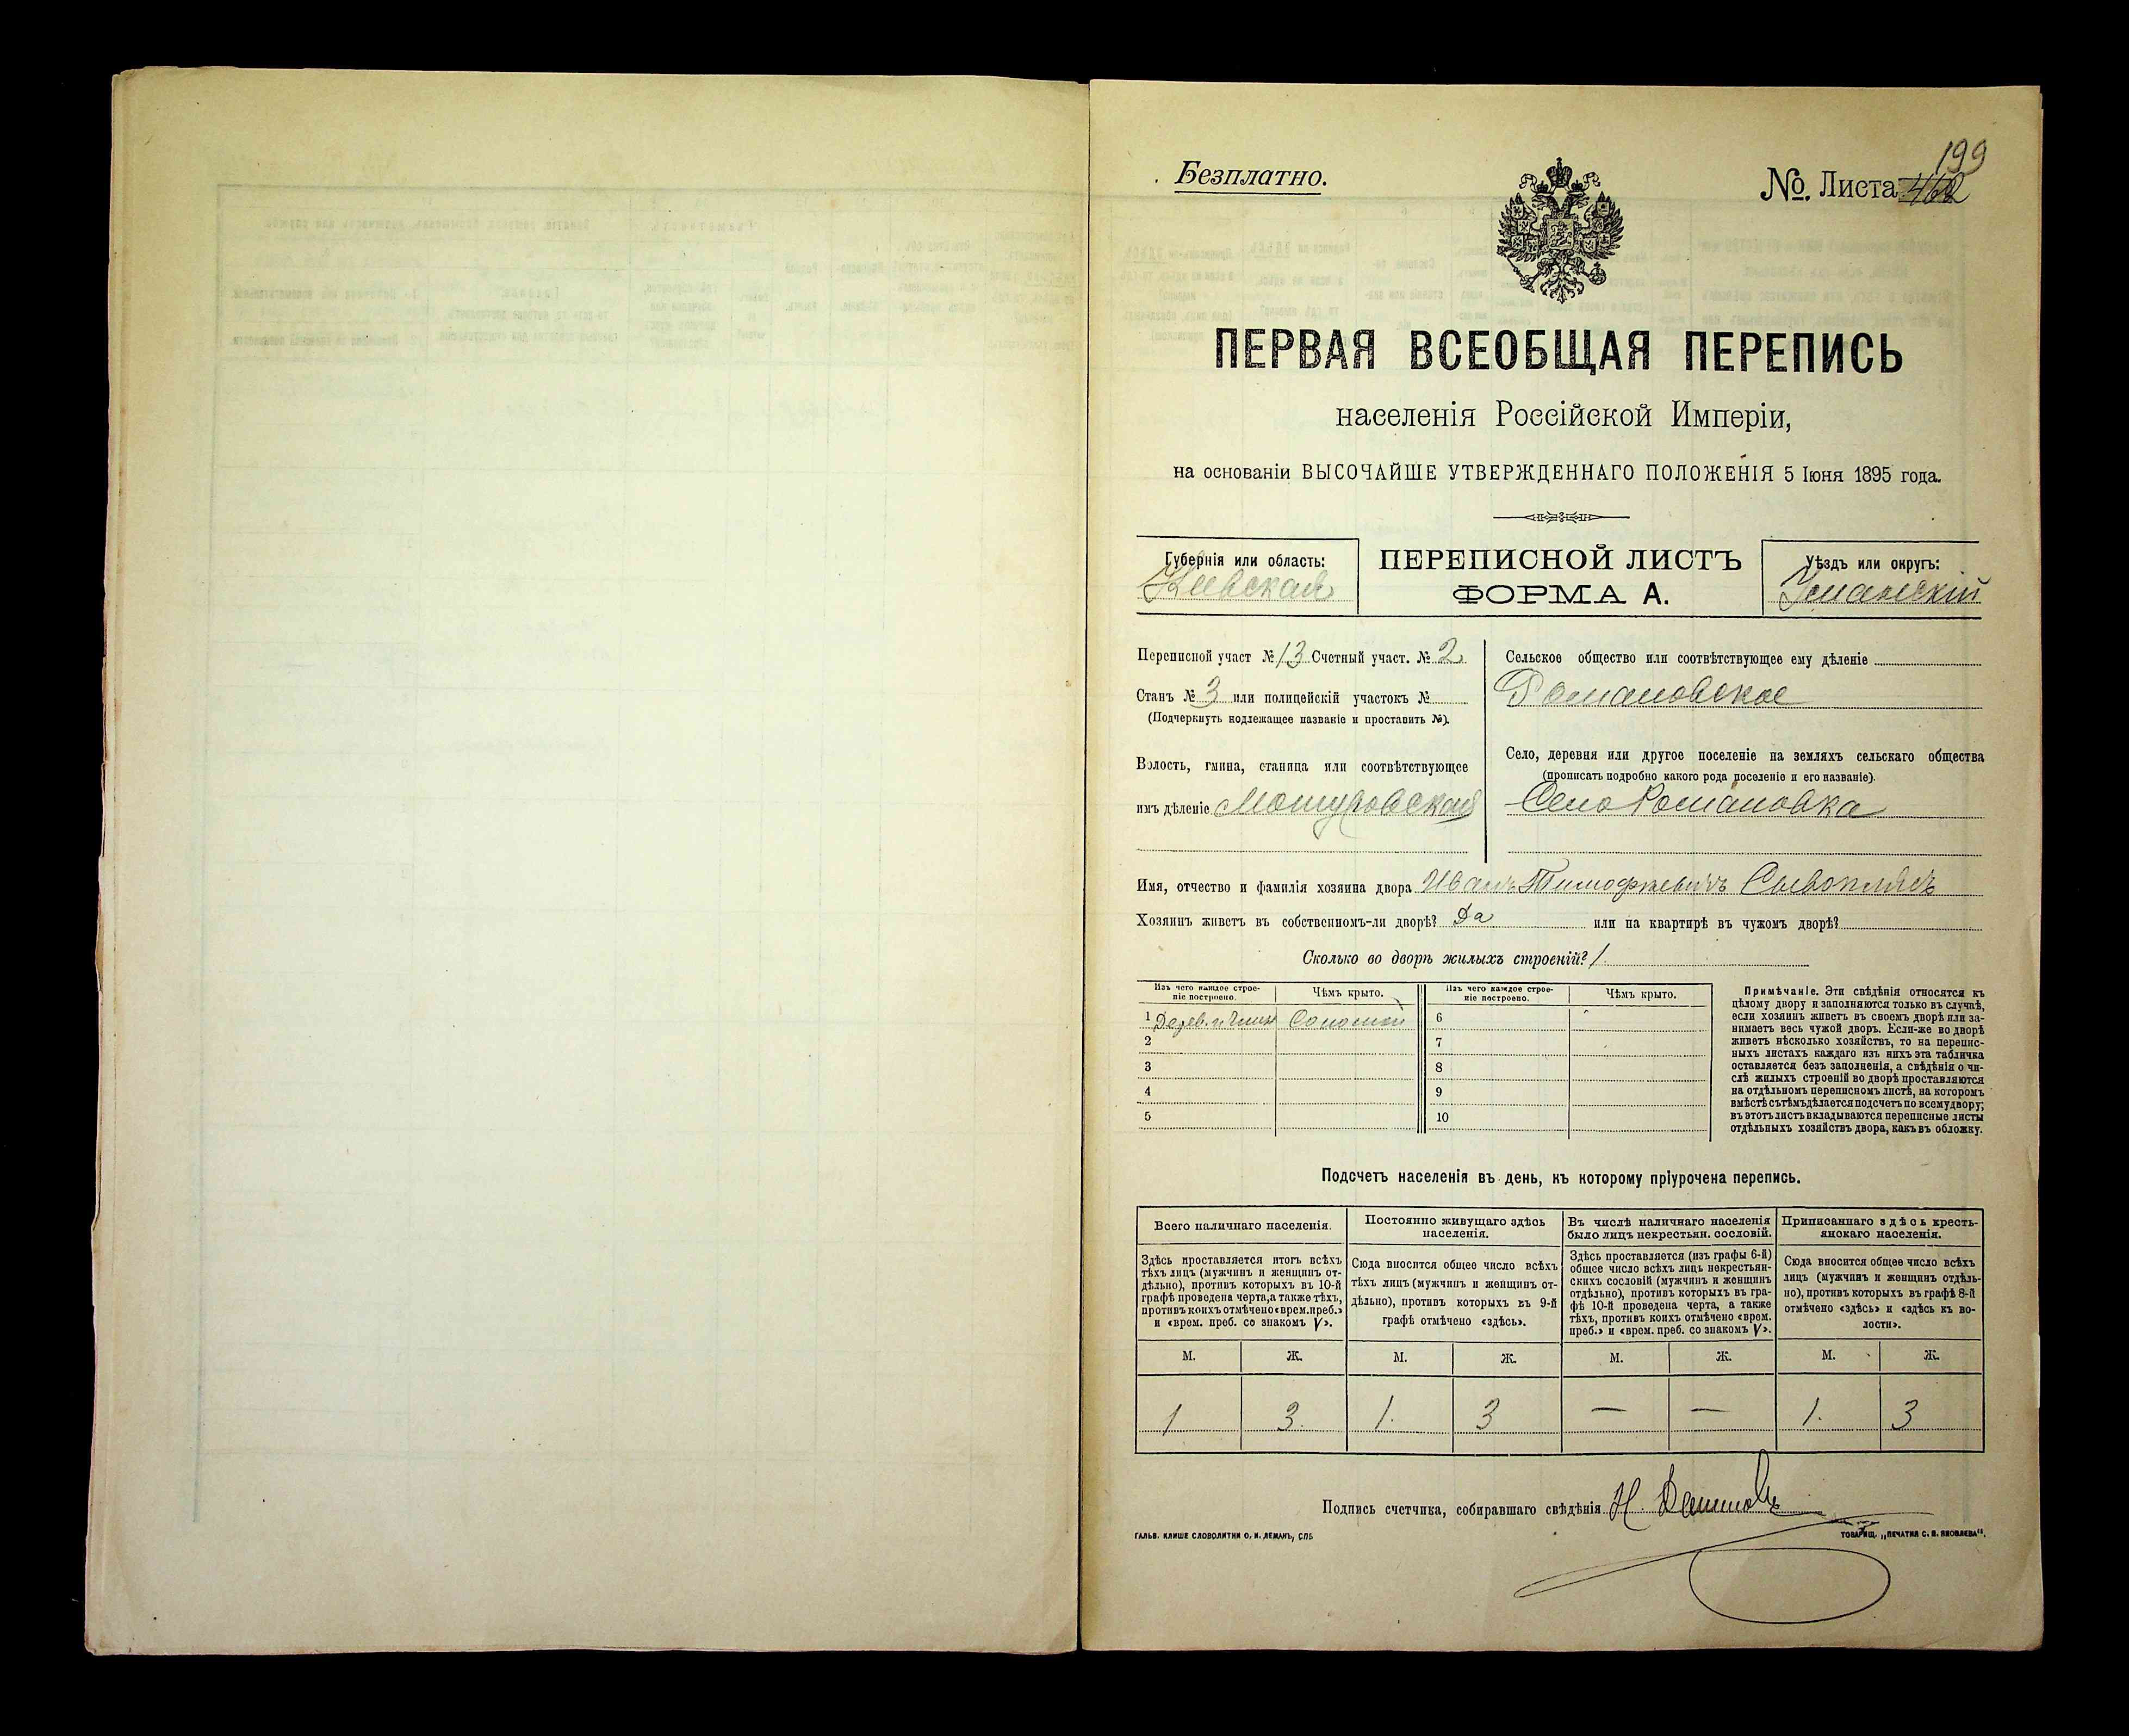 Безплатно.
199
№. Листа
ПЕРВАЯ ВСЕОБЩАЯ ПЕРЕПИСЬ
населенія Россійской Имперіи,
на основаніи ВЫСОЧАЙШЕ УТВЕРЖДЕННАГО ПОЛОЖЕНІЯ 5 Іюня 1895 года.
Губернія или область:
Кіевская
ПЕРЕПИСНОЙ ЛИСТЪ
ФОРМА А.
Уѣздъ или округъ:
Уманскій
Переписной участ № 13 Счетный участ. № 2
Станъ № 3 или полицейскій участокъ №
(Подчеркнуть подлежащее названіе и проставить №).
Волость, гмина, станица или соотвѣтствующее
имъ дѣленіе
Сельское общество или соотвѣтствующее ему дѣленіе
Романовское
Село, деревня или другое поселеніе на земляхъ сельскаго общества
(прописать подробно какого рода поселеніе и его названіе).
Село Романовка
Имя, отчество и фамилія хозяина двора Иванъ Тимофѣевичъ
Хозяинъ живетъ въ собственномъ-ли дворѣ? Да или на квартирѣ въ чужомъ дворѣ?
Сколько во дворѣ жилыхъ строеній? 1
Изъ чего каждое строе-
ніе построено.
Чѣмъ крыто.
Изъ чего каждое строе-
ніе построено.
Чѣмъ крыто.
1 Дерев. и глин Соломой 6
2 7
3 8
4 9
5 10
Примѣчаніе. Эти свѣдѣнія относятся къ
цѣлому двору и заполняются только въ случаѣ,
если хозяинъ живетъ въ своемъ дворѣ или за-
нимаетъ весь чужой дворъ. Если-же во дворѣ
живетъ нѣсколько хозяйствъ, то на перепис-
ныхъ листахъ каждаго изъ нихъ эта табличка
оставляется безъ заполненія, а свѣдѣнія о чи-
слѣ жилыхъ строеній во дворѣ проставляются
на отдѣльномъ переписномъ листѣ, на которомъ
вмѣстѣ съ тѣмъ дѣлается подсчетъ по всему двору;
въ этотъ листъ вкладываются переписные листы
отдѣльныхъ хозяйствъ двора, какъ въ обложку.
Подсчетъ населенія въ день, къ которому пріурочена перепись.
Всего наличнаго населенія.
Здѣсь проставляется итогъ всѣхъ
тѣхъ лицъ (мужчинъ и женщинъ от-
дѣльно), противъ которыхъ въ 10-й
графѣ проведена черта, а также тѣхъ,
противъ коихъ отмѣчено «врем. преб.»
и «врем. преб. со знакомъ V».
Постоянно живущаго здѣсь
населенія.
Сюда вносится общее число всѣхъ
тѣхъ лицъ (мужчинъ и женщинъ от-
дѣльно), противъ которыхъ въ 9-й
графѣ отмѣчено «здѣсь».
Въ числѣ наличнаго населенія
было лицъ некрестьян. сословій.
Здѣсь проставляется (изъ графы 6-й)
общее число всѣхъ лицъ некрестьян-
скихъ сословій (мужчинъ и женщинъ
отдѣльно), противъ которыхъ въ гра-
фѣ 10-й проведена черта, а также
тѣхъ, противъ коихъ отмѣчено «врем.
преб.» и «врем. преб. со знакомъ V».
Приписаннаго здѣсь кресть-
янскаго населенія.
Сюда вносится общее число всѣхъ
лицъ (мужчинъ и женщинъ отдѣль-
но), противъ которыхъ въ графѣ 8-й
отмѣчено «здѣсь» и «здѣсь къ во-
лости».
М. Ж. М. Ж. М. Ж. М. Ж.
1 3. 1. 3 — — 1. 3
Подпись счетчика, собиравшаго свѣдѣнія Н.
ГАЛЬВ. КЛИШЕ СЛОВОЛИТНИ О. И. ЛЕМАНЪ, СПБ
ТОВАРИЩ. „ПЕЧАТНЯ С. П. ЯКОВЛЕВА“.